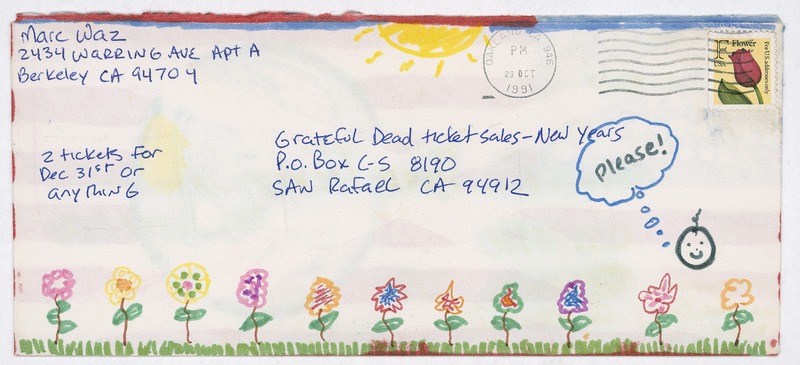 Marc Waz
2434 Warring Ave Apt A
Berkeley CA 94704
OAKLAND CA 946
PM
29 OCT
1991
F Flower
USA
For U.S. addresses only
Grateful Dead ticket sales-New Years
P.O. Box C-S 8190
SAN Rafael CA 94912
2 tickets for
Dec 31st or
anything
please!